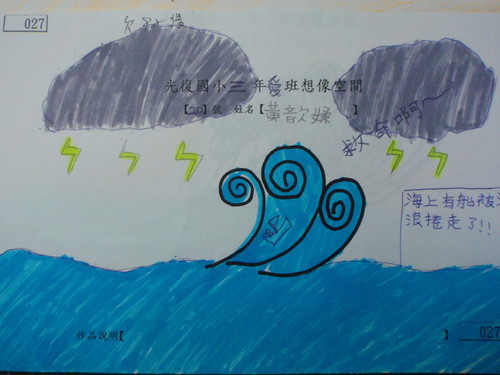 027
光復國小三年愛班想像空間
【20】號 姓名【黃音欠嫀】
救命啊~
海上有船被
浪捲走了!!
作品說明【 】
027